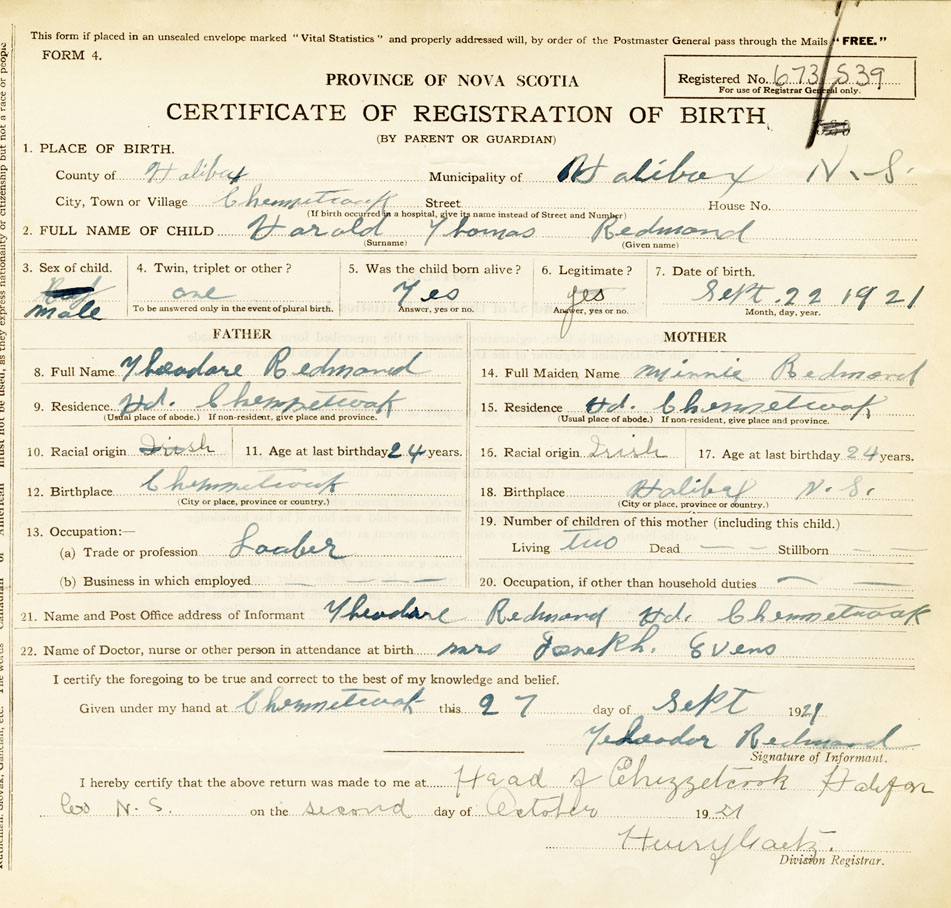 This form if placed in an unsealed envelope marked "Vital Statistics" and properly addressed will, by order of the Postmaster General pass through the Mails "FREE."
FORM 4.
PROVINCE OF NOVA SCOTIA
Registered No. 673539
For use of Registrar General only.
CERTIFICATE OF REGISTRATION OF BIRTH
(BY PARENT OR GUARDIAN)
1. PLACE OF BIRTH.
County of Halibax Municipality of Halibax N.S.
City, Town or Village Chemmetcook Street House No.
(If birth occurred in a hospital, give its name instead of Street and Number)
2. FULL NAME OF CHILD Harold Thomas Redmond
(Surname) (Given name)
3. Sex of child. 4. Twin, triplet or other? 5. Was the child born alive? 6. Legitimate? 7. Date of birth.
one Yes yes Sept. 22 1921
Male To be answered only in the event of plural birth. Answer, yes or no. Answer, yes or no. Month, day, year.
FATHER MOTHER
8. Full Name Theodore Redmond 14. Full Maiden Name Minnie Redmond
9. Residence. Hd. Chemmetcook 15. Residence Hd. Chemmetcook
(Usual place of abode.) If non-resident, give place and province. (Usual place of abode.) If non-resident, give place and province.
10. Racial origin Irish 11. Age at last birthday 24 years. 16. Racial origin Irish 17. Age at last birthday 24 years.
12. Birthplace Chemmetcook 18. Birthplace Halibax N.S.
(City or place, province or country.) (City or place, province or country.)
13. Occupation:— 19. Number of children of this mother (including this child.)
(a) Trade or profession Laaber Living two Dead — — Stillborn — —
(b) Business in which employed — — — — 20. Occupation, if other than household duties — —
21. Name and Post Office address of Informant Theodore Redmond Hd. Chemmetcook
22. Name of Doctor, nurse or other person in attendance at birth Mrs Evens
I certify the foregoing to be true and correct to the best of my knowledge and belief.
Given under my hand at Chemmetcook this 27 day of Sept 1921
Theodor Redmond
Signature of Informant.
I hereby certify that the above return was made to me at Head of Chezzetcook Halifax
Co N.S. on the second day of October 1921
Henry Gaetz.
Division Registrar.